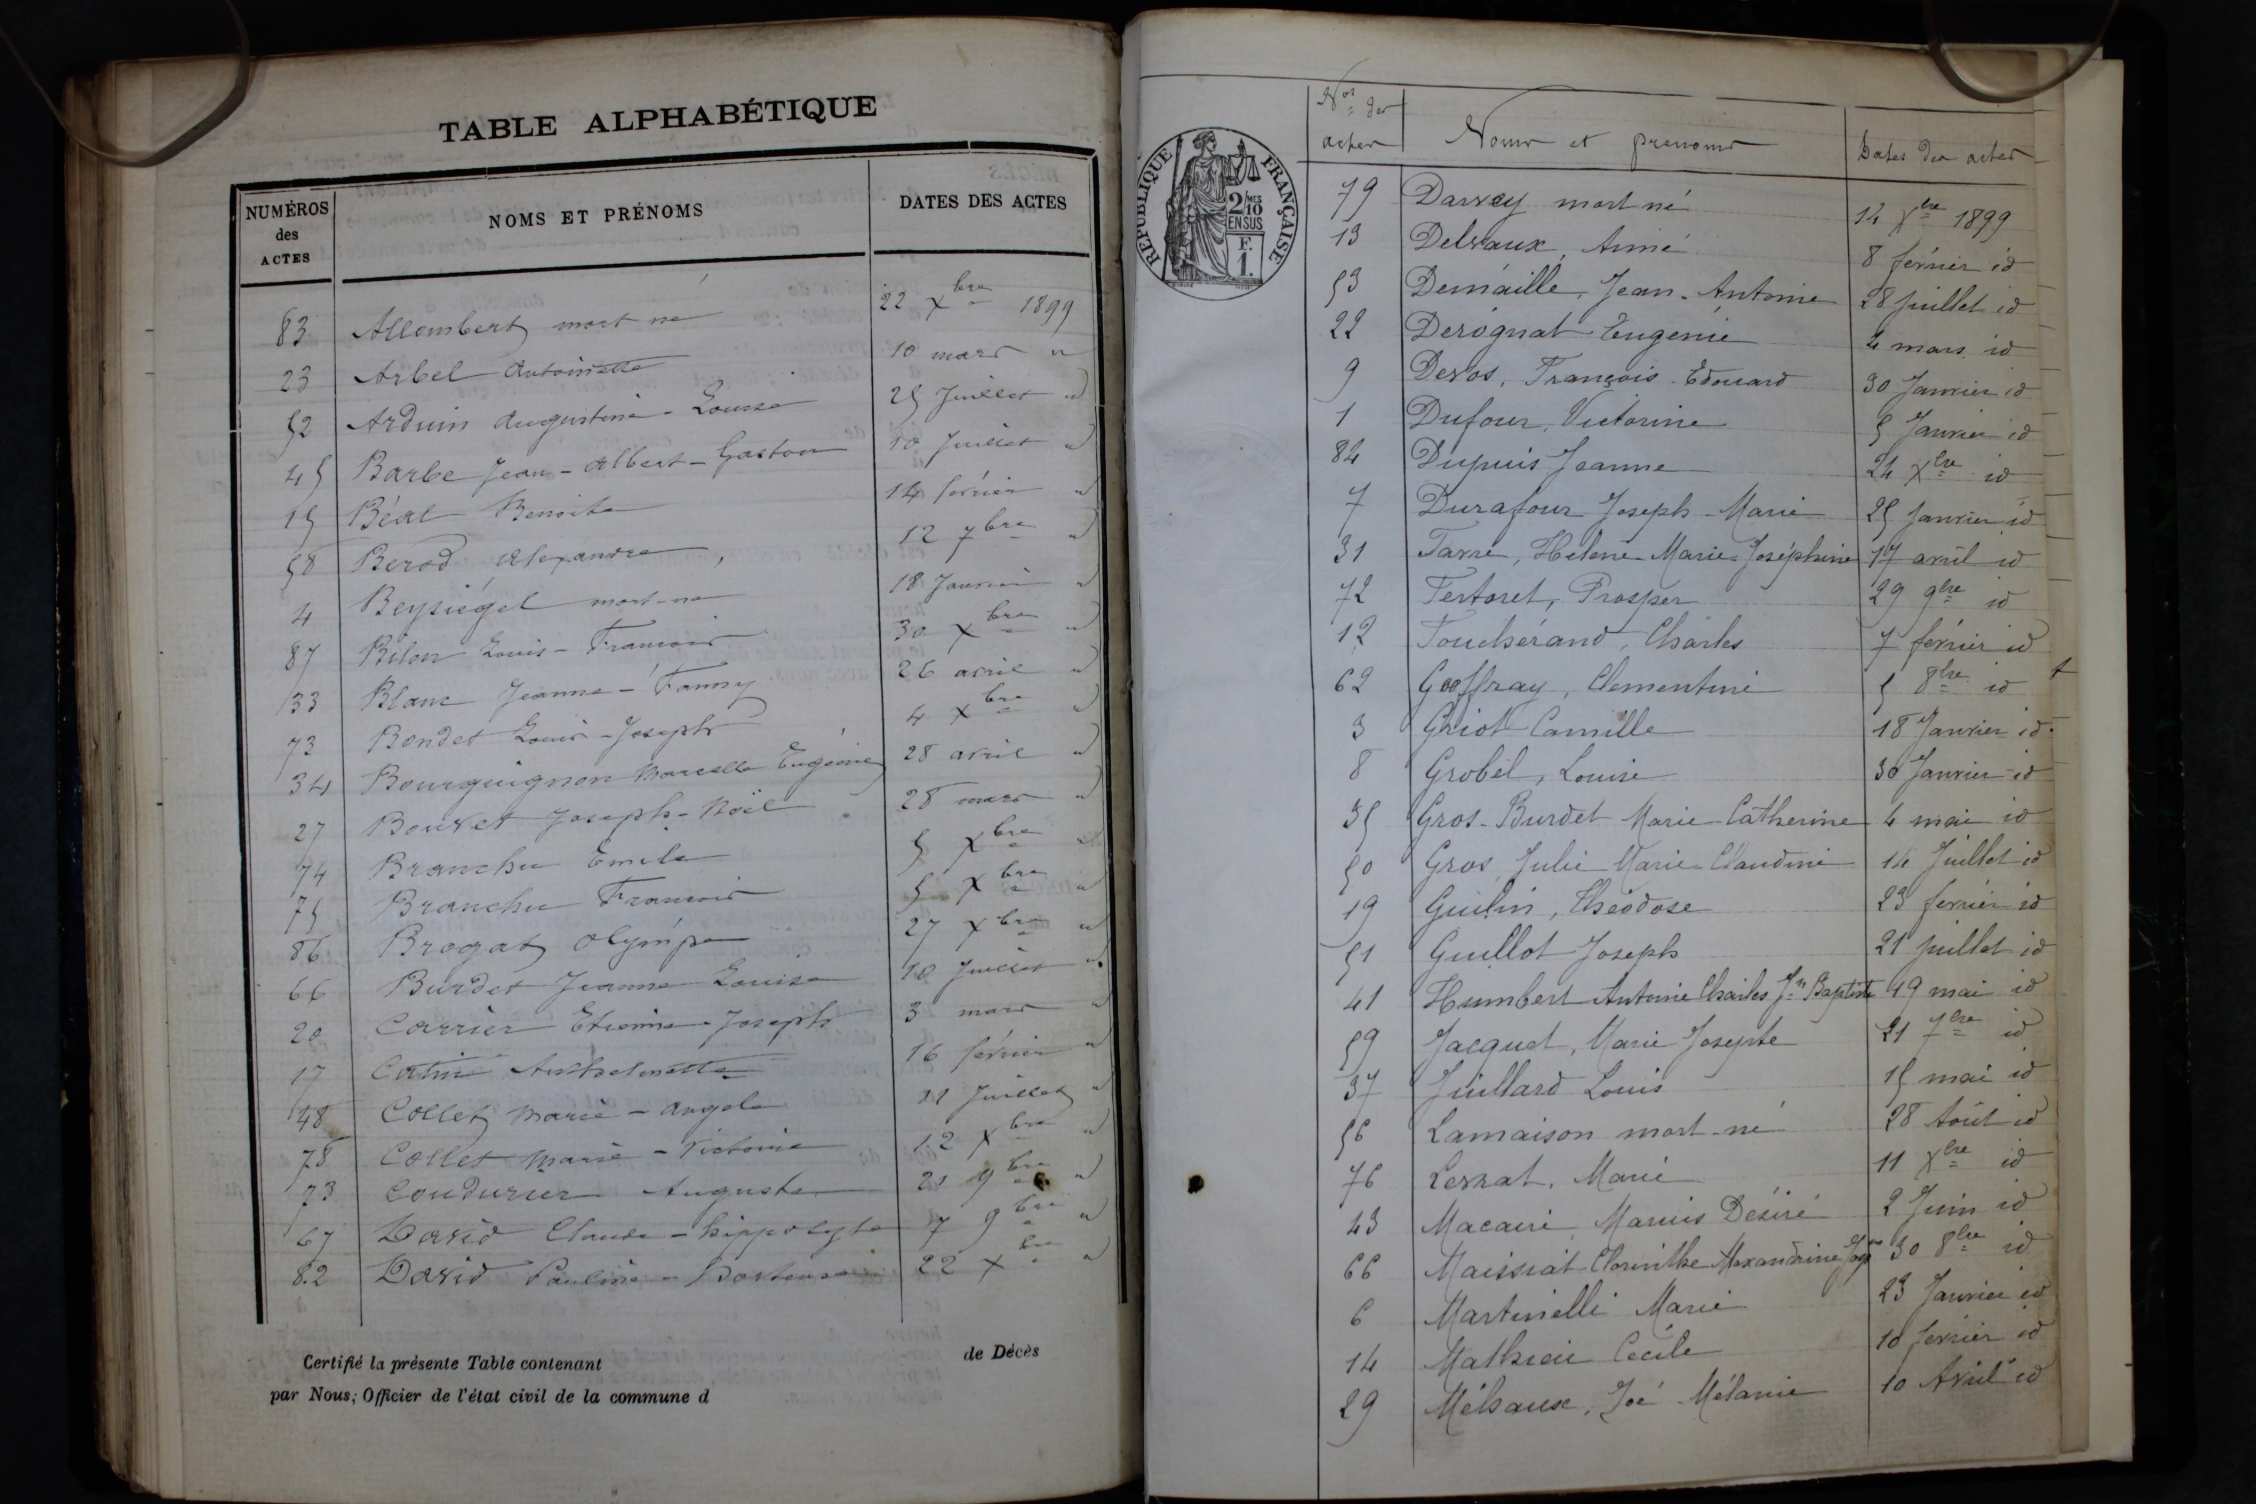 TABLE ALPHABÉTIQUE
NUMÉROS des ACTES NOMS ET PRÉNOMS DATES DES ACTES
83 Allombert mort né 22 Xbre 1899
23 Arbel Antoinette 10 mars id
52 Arduin Augustine - Louise 25 Juillet id
45 Barbe Jean - Albert - Gaston 10 Juillet id
15 Béat Benoite 14 février id
58 Berod Alexandre 12 7bre id
4 Beysiégel mort-né 18 Janvier id
87 Bilon Louis - François 30 Xbre id
33 Blanc Jeanne - Fanny 26 avril id
73 Bondet Louis - Joseph 4 Xbre id
34 Bourguignon Marcelle Eugénie 28 avril id
27 Bouvet Joseph - Noël 28 mars id
74 Branchu Emile 5 Xbre id
75 Branchu François 5 Xbre id
86 Brogat Olympe 27 Xbre id
66 Burdet Jeanne Louise 10 Juillet id
20 Carrier Etienne Joseph 3 mars id
17 Catin Anthelmette 16 février id
48 Collet Marie - Angele 11 Juillet id
78 Collet Marie - Victoire 12 Xbre id
73 Coudurier Auguste 21 9bre id
67 David Claude - hippolyte 7 9bre id
82 David Pauline - Hortense 22 Xbre id
Certifié la présente Table contenant de Décès
par Nous, Officier de l'état civil de la commune d
RÉPUBLIQUE FRANÇAISE
2/10 MES
EN SUS
F.
1.
Nos des actes Noms et prenoms Dates des actes
79 Darvey mort né 14 Xbre 1899
13 Delvaux, Aimé 8 février id
53 Demaille, Jean - Antoine 28 Juillet id
22 Derognat Eugenie 4 mars id
9 Devos, François - Edouard 30 Janvier id
1 Dufour, Victorine 5 Janvier id
84 Dupuis Jeanne 24 Xbre id
7 Durafour Joseph - Marie 25 Janvier id
31 Favre, Hélène - Marie - Joséphine 17 avril id
72 Fertoret, Prosper 29 9bre id
12 Fouchérand, Charles 7 février id
62 Geoffray, Clementine 5 8bre id
3 Griot Camille 18 Janvier id
8 Grobel, Louise 30 Janvier id
35 Gros-Burdet Marie Catherine 4 mai id
50 Gros Julie Marie Claudine 14 Juillet id
19 Guilin, Théodose 23 février id
51 Guillot Joseph 21 juillet id
41 Humbert Antoine Charles Jn Baptiste 19 mai id
59 Jacquet, Marie Josepte 21 7bre id
37 Juillard Louis 15 mai id
56 Lamaison mort-né 28 Août id
76 Levrat, Marie 11 Xbre id
43 Macaire, Marius Désiré 2 Juin id
66 Maissiat Clorinthe Alexandrine 30 8bre id
6 Martinelli Marie 23 Janvier id
14 Mathieu Cécile 10 février id
29 Méhaux, Zoé Mélanie 10 Avril id